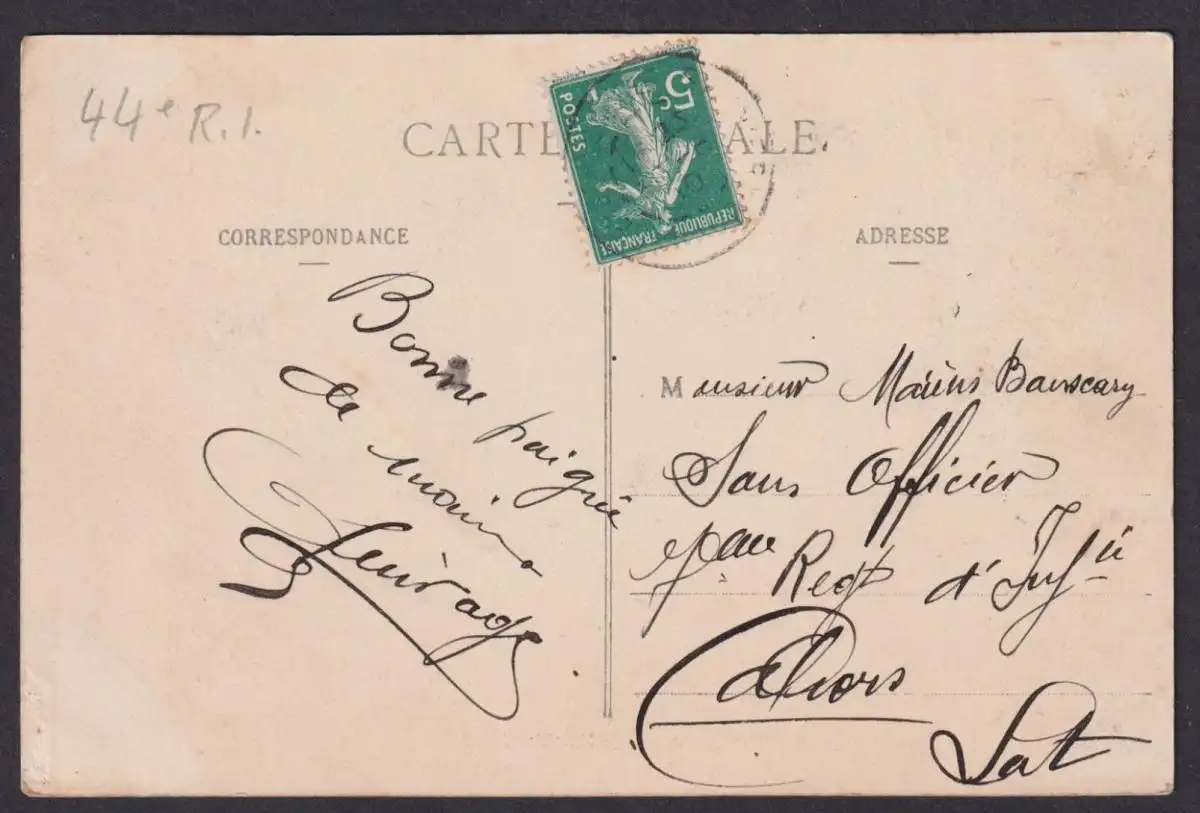 44e R.I.
CARTE ALE.
5c
POSTES
REPUBLIQUE FRANÇAISE
CORRESPONDANCE
ADRESSE
Bonne poignée
de mains
Monsieur Marius
Sous Officier
Regt d'Infie
Cahors
Lot